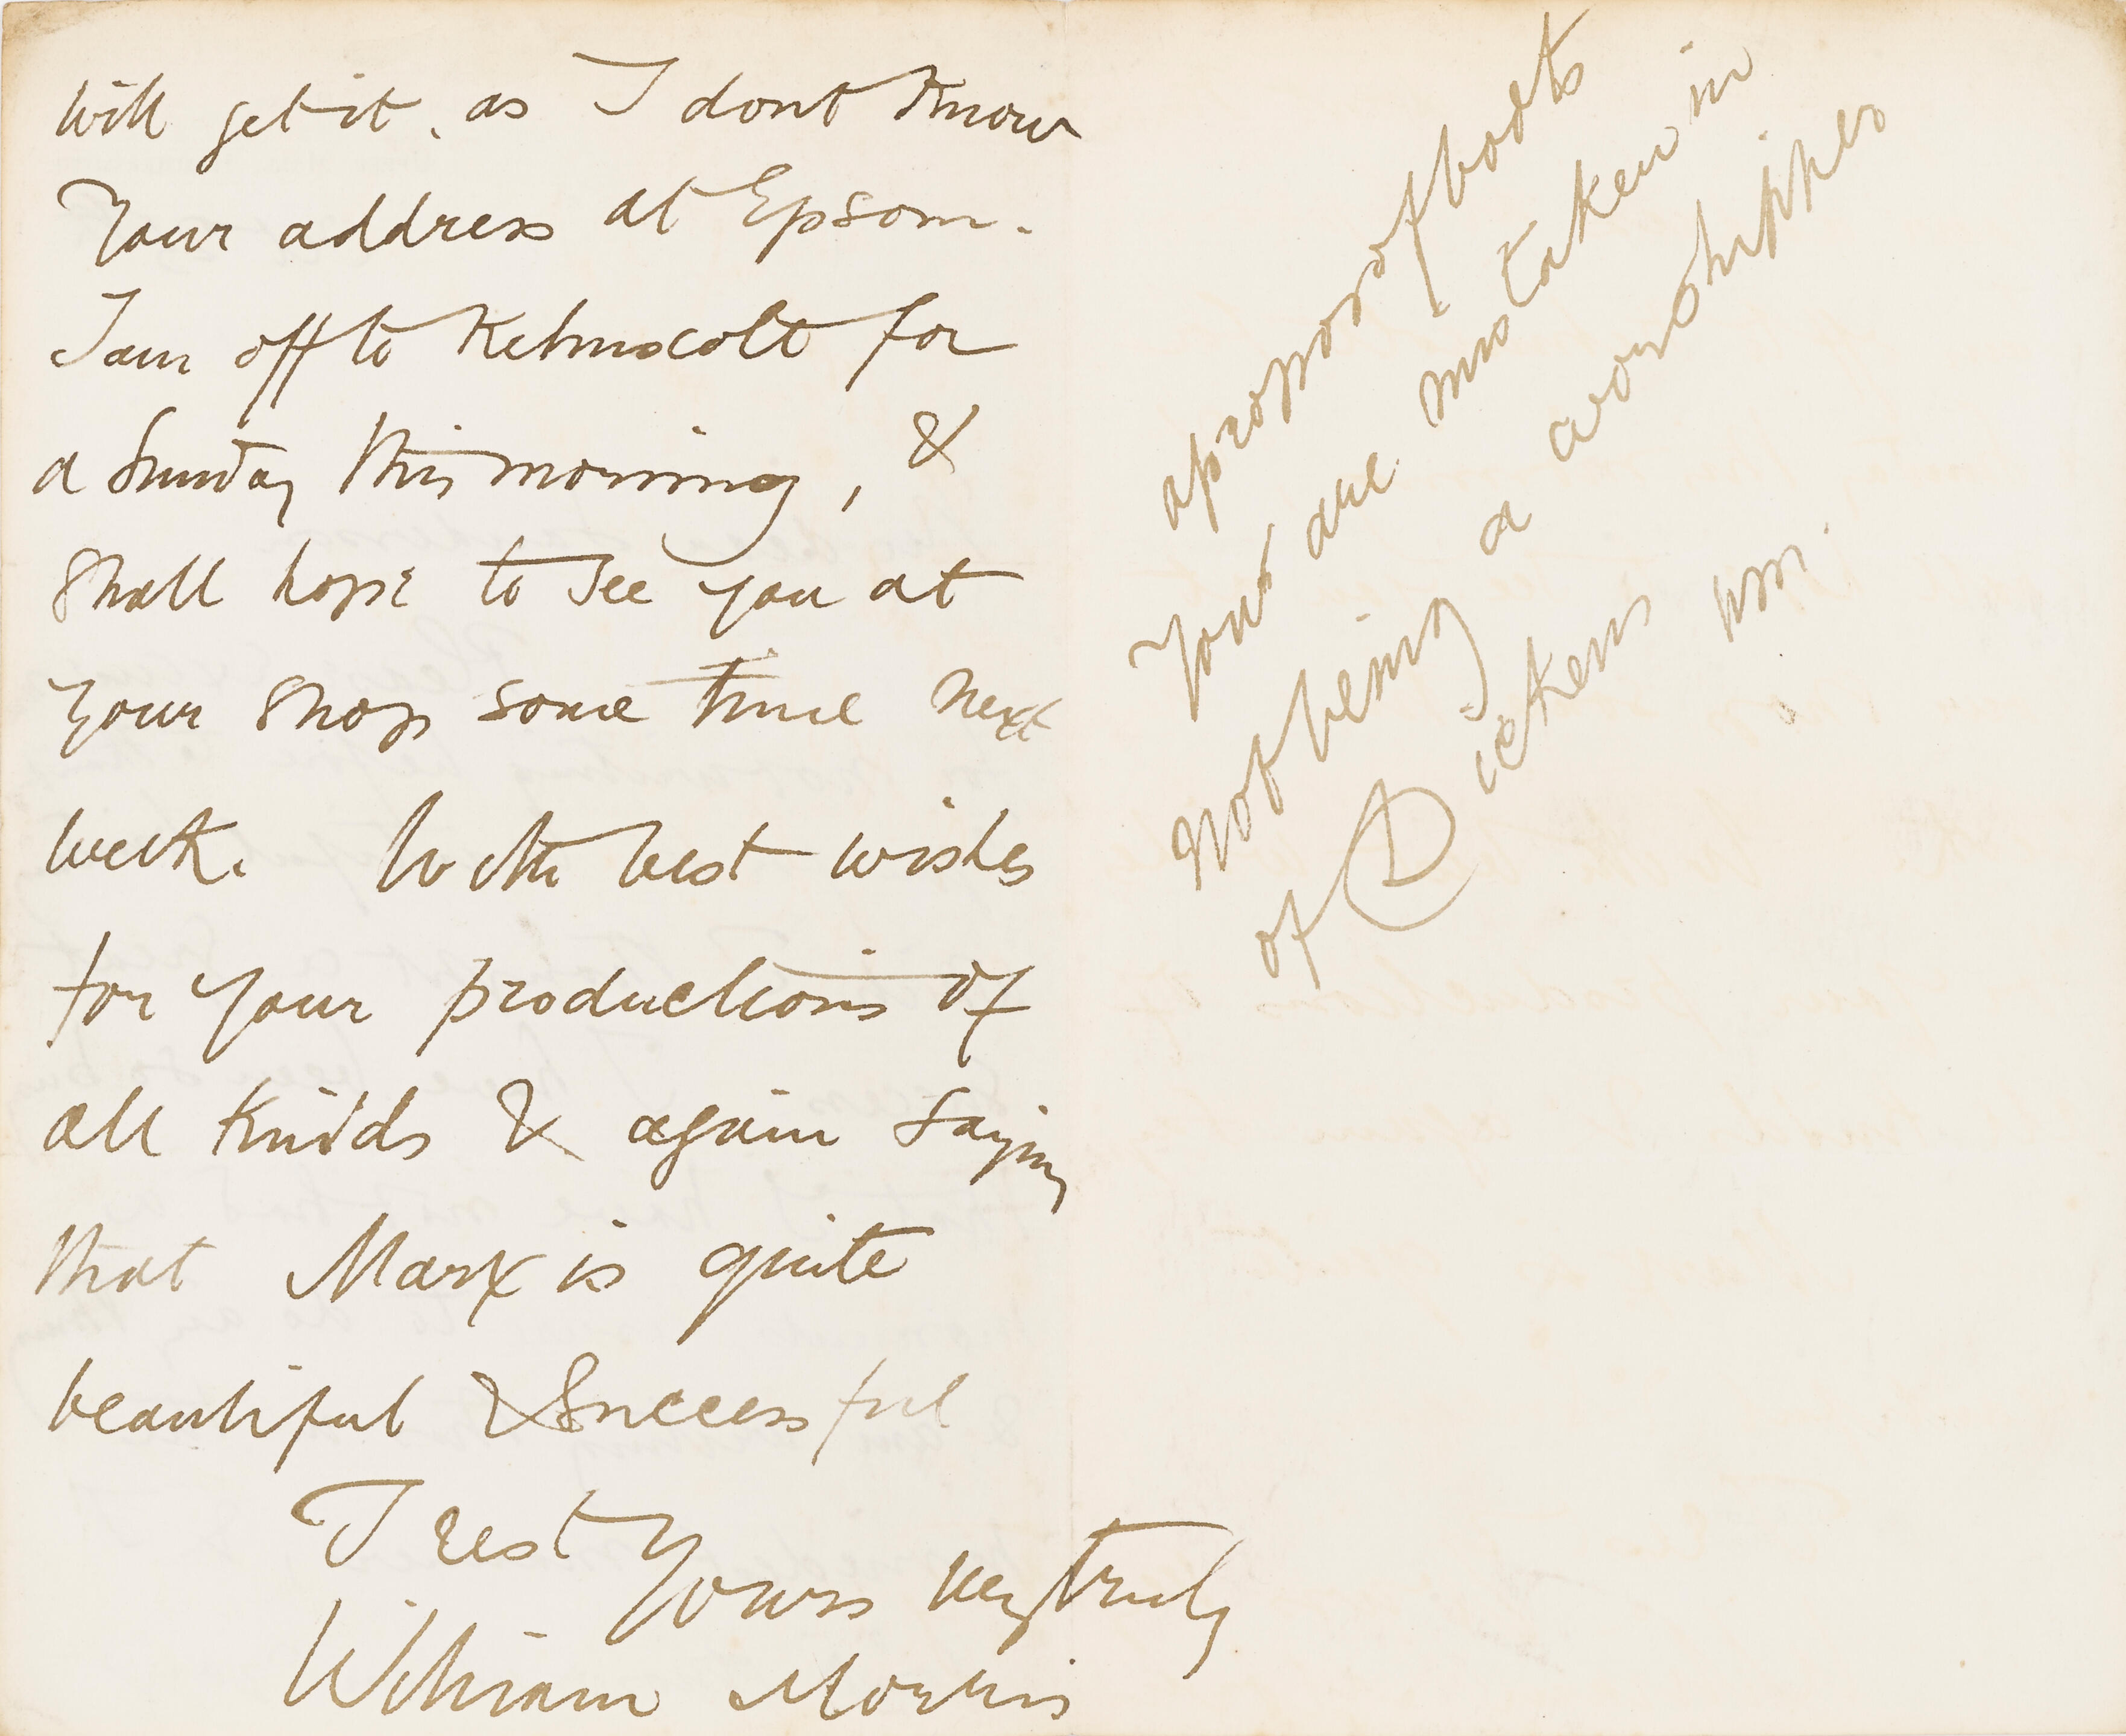 will get it, as I dont know
your address at Epsom.
I am off to Kelmscott for
a Sunday this morning, &
shall hope to see you at
your shop some time next
week. With best wishes
for your productions of
all kinds & again saying
that Marx is quite
beautiful & successful
I rest Yours very truly
William Morris
apropos of boots
Your are mistaken in
my not being a worshipper
of Dickens WM.